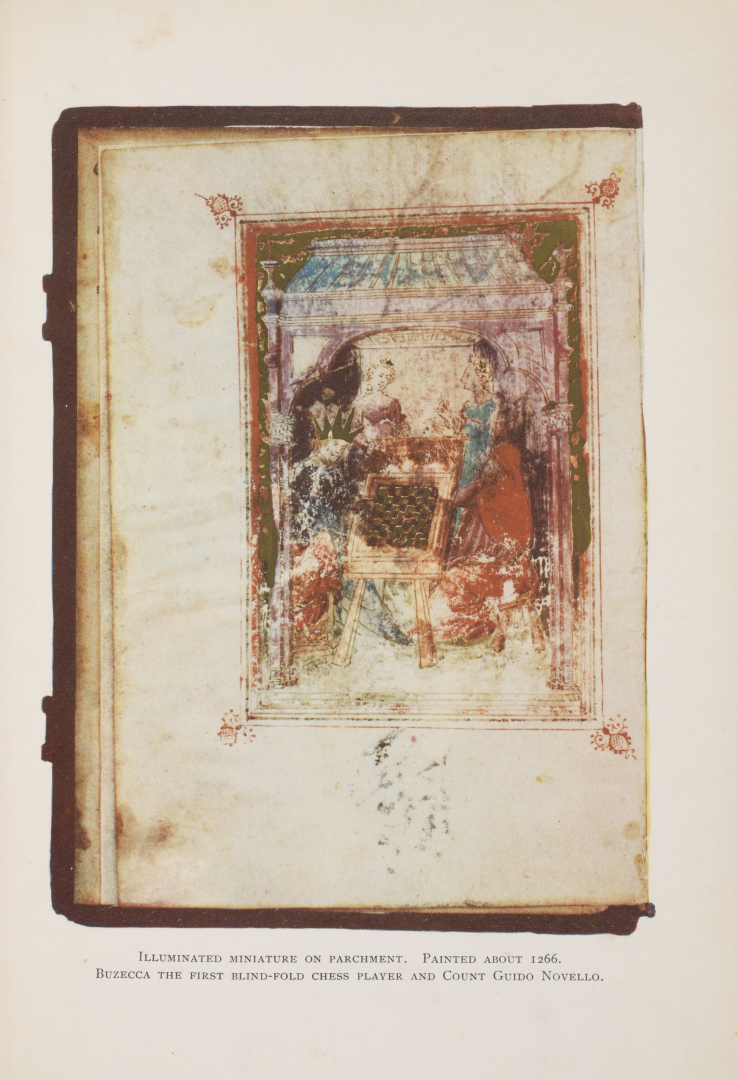 Illuminated miniature on parchment. Painted about 1266.
Buzecca the first blind-fold chess player and Count Guido Novello.